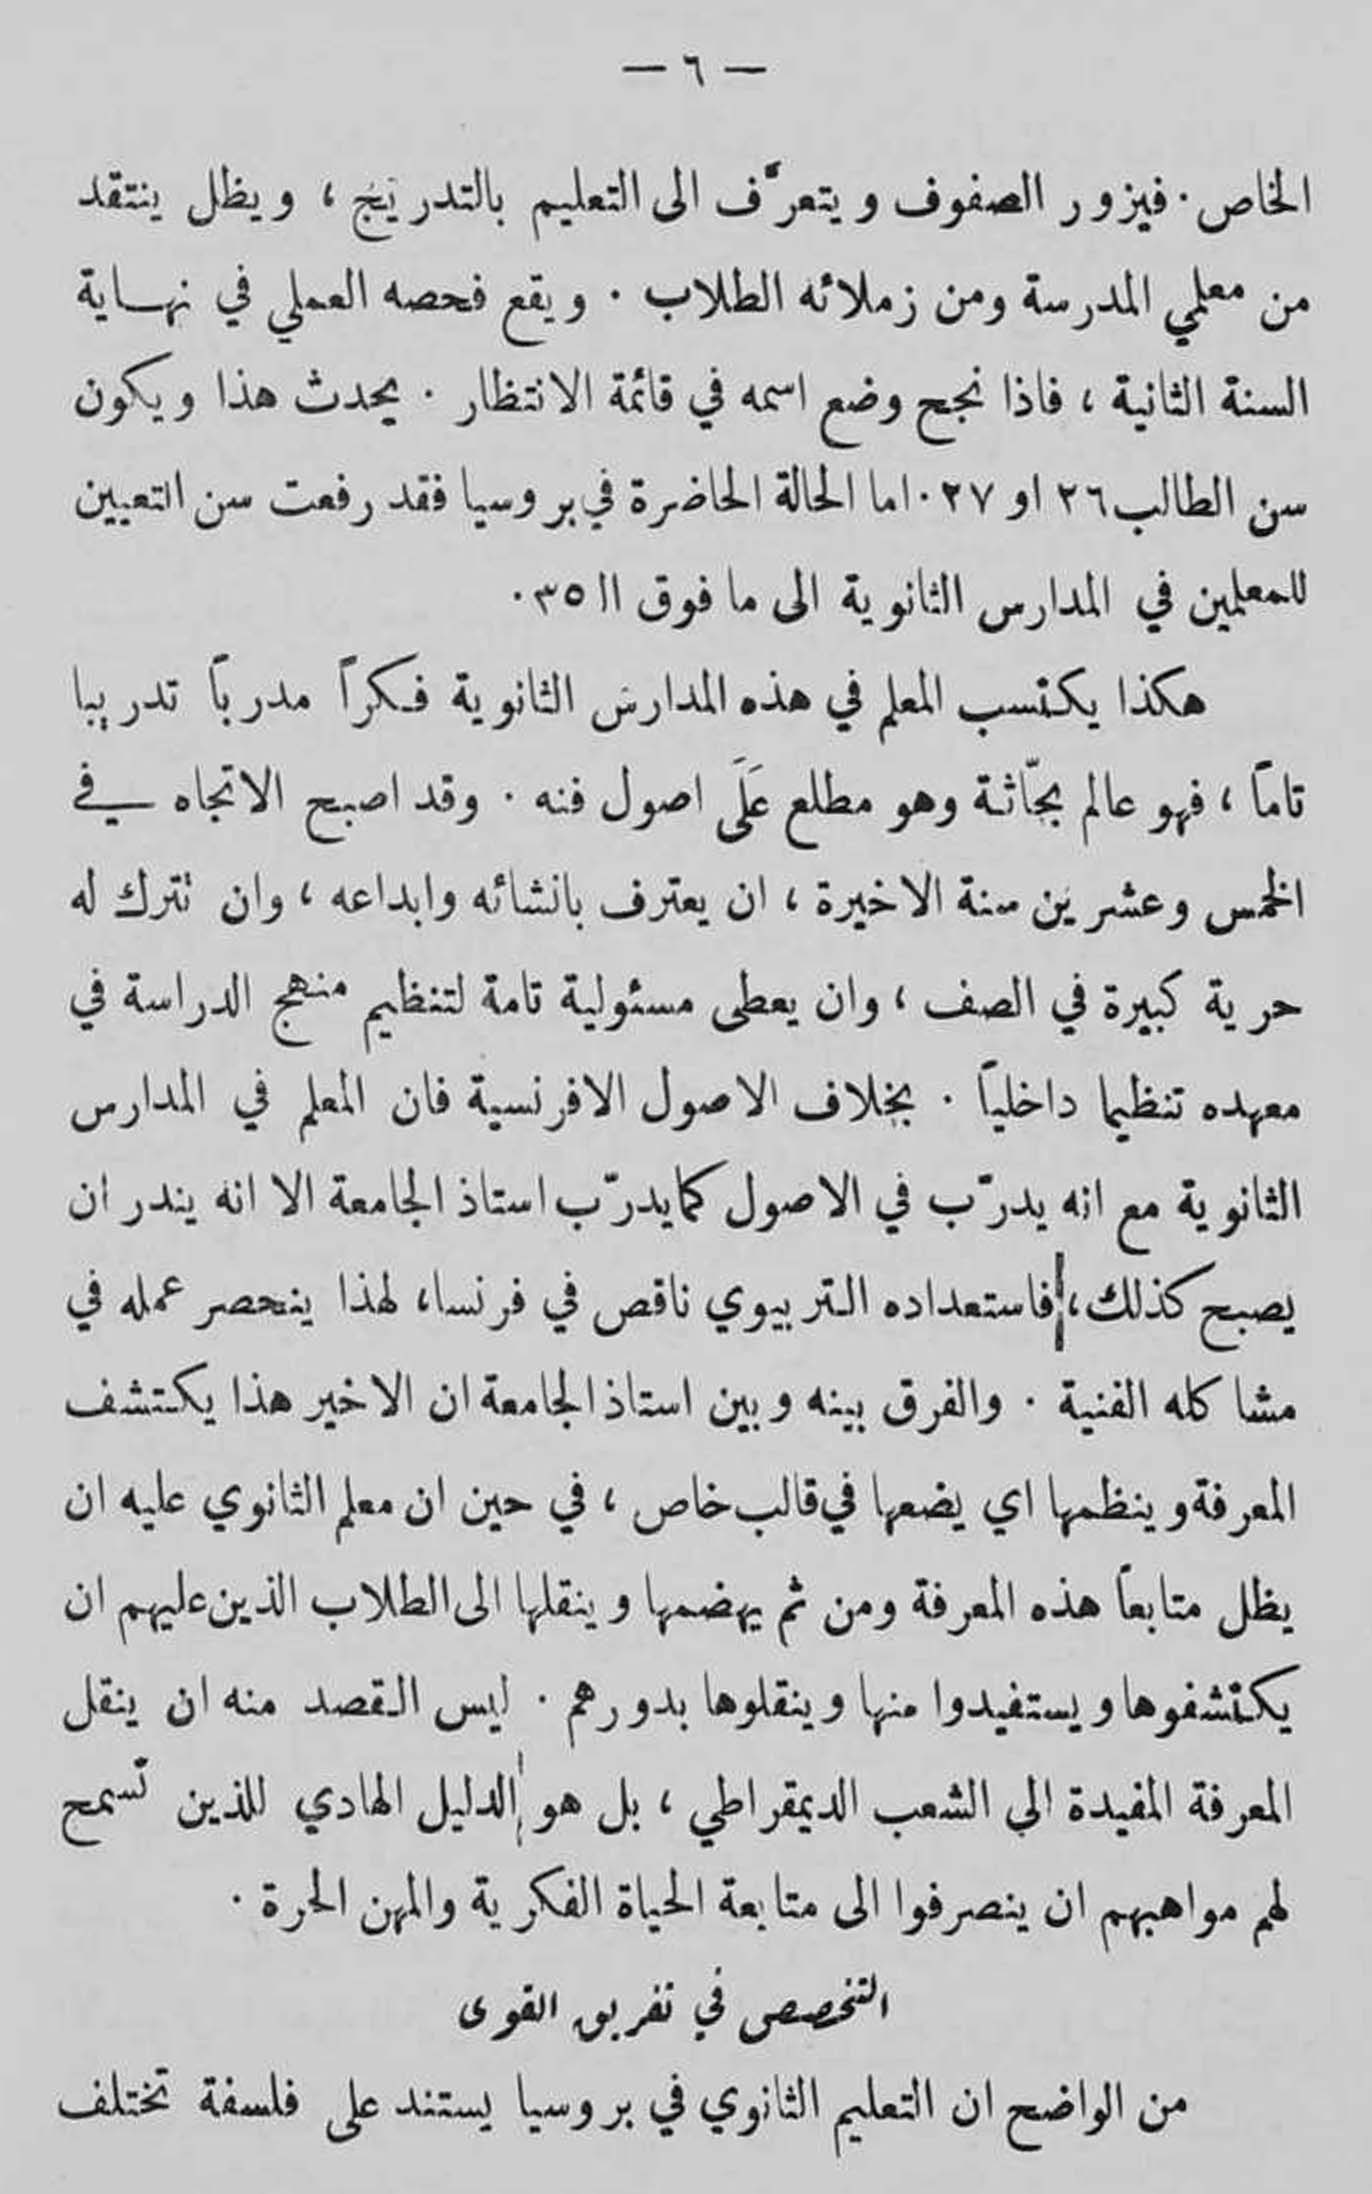 — ٦ —
الخاص. فيزور الصفوف ويتعرَّف الى التعليم بالتدريج ، ويظل ينتقد
من معلمي المدرسة ومن زملائه الطلاب . ويقع فحصه العملي في نهاية
السنة الثانية ، فاذا نجح وضع اسمه في قائمة الانتظار . يحدث هذا ويكون
سن الطالب ٢٦ او ٢٧. اما الحالة الحاضرة في بروسيا فقد رفعت سن التعيين
للمعلمين في المدارس الثانوية الى ما فوق ال ٣٥.
هكذا يكتسب المعلم في هذه المدارس الثانوية فكراً مدرباً تدريبا
تاماً ، فهو عالم بحّاثة وهو مطلع عَلَى اصول فنه . وقد اصبح الاتجاه في
الخمس وعشرين سنة الاخيرة ، ان يعترف بانشائه وابداعه ، وان تترك له
حرية كبيرة في الصف ، وان يعطى مسئولية تامة لتنظيم منهج الدراسة في
معهده تنظيما داخلياً . بخلاف الاصول الافرنسية فان المعلم في المدارس
الثانوية مع انه يدرّب في الاصول كما يدرّب استاذ الجامعة الا انه يندر ان
يصبح كذلك، فاستعداده التربيوي ناقص في فرنسا، لهذا ينحصر عمله في
مشاكله الفنية . والفرق بينه وبين استاذ الجامعة ان الاخير هذا يكتشف
المعرفة وينظمها اي يضعها في قالب خاص ، في حين ان معلم الثانوي عليه ان
يظل متابعاً هذه المعرفة ومن ثم يهضمها وينقلها الى الطلاب الذين عليهم ان
يكتشفوها ويستفيدوا منها وينقلوها بدورهم . ليس القصد منه ان ينقل
المعرفة المفيدة الى الشعب الديمقراطي ، بل هو الدليل الهادي للذين تسمح
لهم مواهبهم ان ينصرفوا الى متابعة الحياة الفكرية والمهن الحرة .
التخصص في تفريق القوى
من الواضح ان التعليم الثانوي في بروسيا يستند على فلسفة تختلف